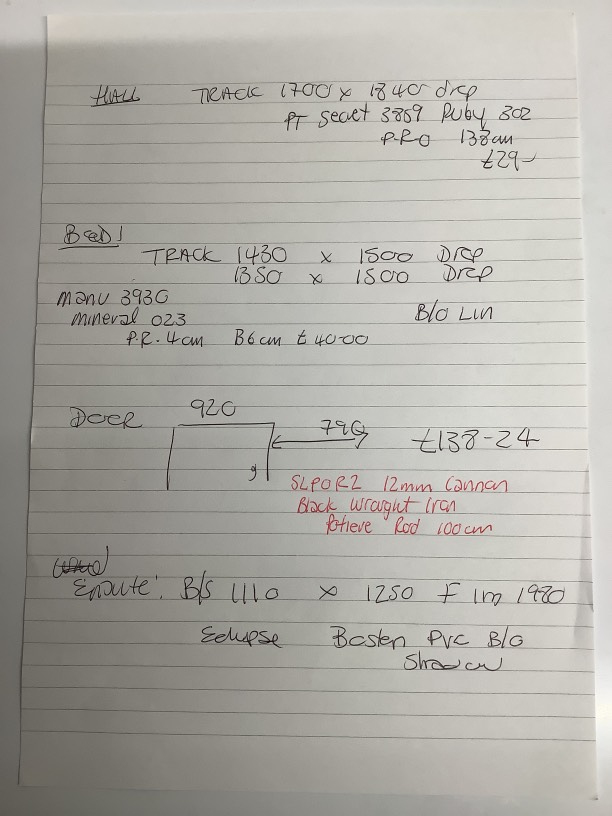 HALL TRACK 1700 x 1840 drop
PT Secret 3859 Ruby 302
P.R.O 138cm
£29-
Bed 1
TRACK 1430 x 1500 Drop
1350 x 1500 Drop
manu 3930
mineral 023 B/O Lin
P.R. 4cm B6cm £40-00
DOOR 920 790 £138-24
SLPOR2 12mm Cannon
Black Wrought Iron
Portieve Rod 100cm
Ensuite: B/S 1110 x 1250 F 1m 1980
Eclipse Boston PVC B/O